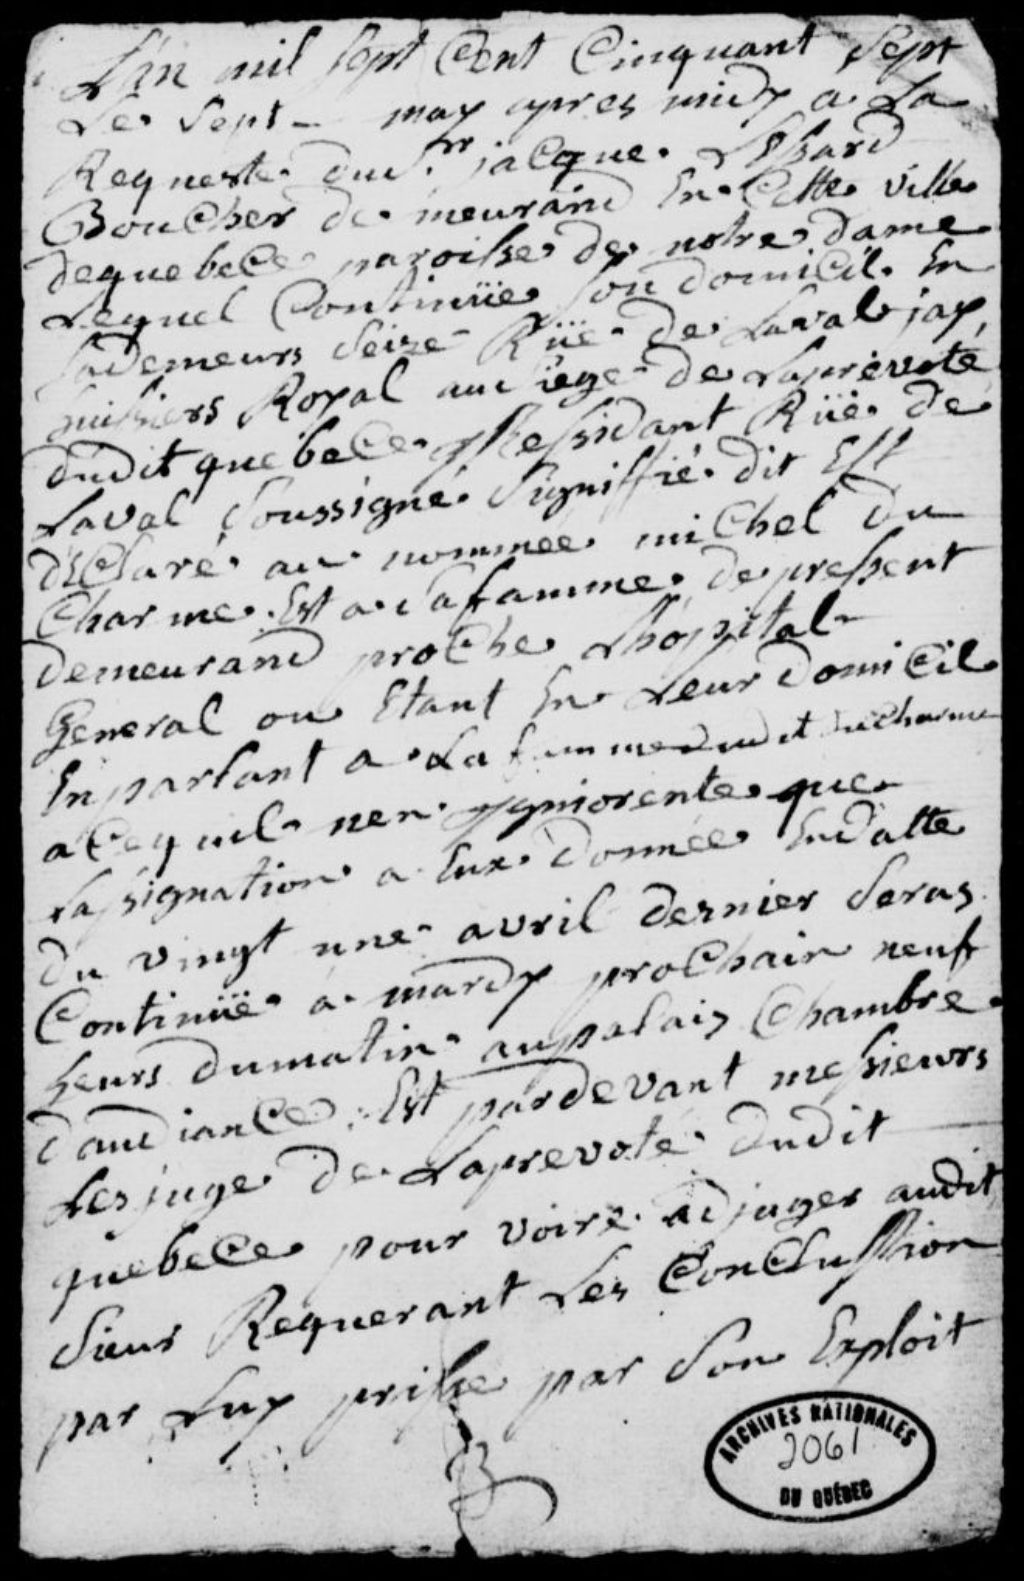 Lan mil sept Cent Cinquant Sept
Le Sept - may apres midy a La
Requeste dud. Sr jacque Lessard
Boucher de meurand En Cette ville
dequebece paroisse de notre dame
Lequel Continüe son domicil En
sademeurs seize Rüe de Laval jay
huissiers Royal au siege de Laprevoté
dudit quebece Ressidant Rüe de
Laval Soussigné Signiffié dit Est
déClaré au nommée michel du
Charme Est a safamme de pressent
demeurand proche Lhopital
General ou Etant En Leur domicile
Enparlant a La femme dudit duCharme
aCequil nen ygniorente que
Lassignation a Eux donnée Endatte
du vingt une avril dernier Seras
Continüe a mardy proChain neuf
heurs dumatin aupalais Chambre
daudiance Est pardevant messieurs
Les juge de Laprevoté dudit
quebece pour voire adjuger audit
Sieur Requerant Les Conclussion
par Luy prisse par Son Exploit
ARCHIVES NATIONALES
2061
DU QUÉBEC